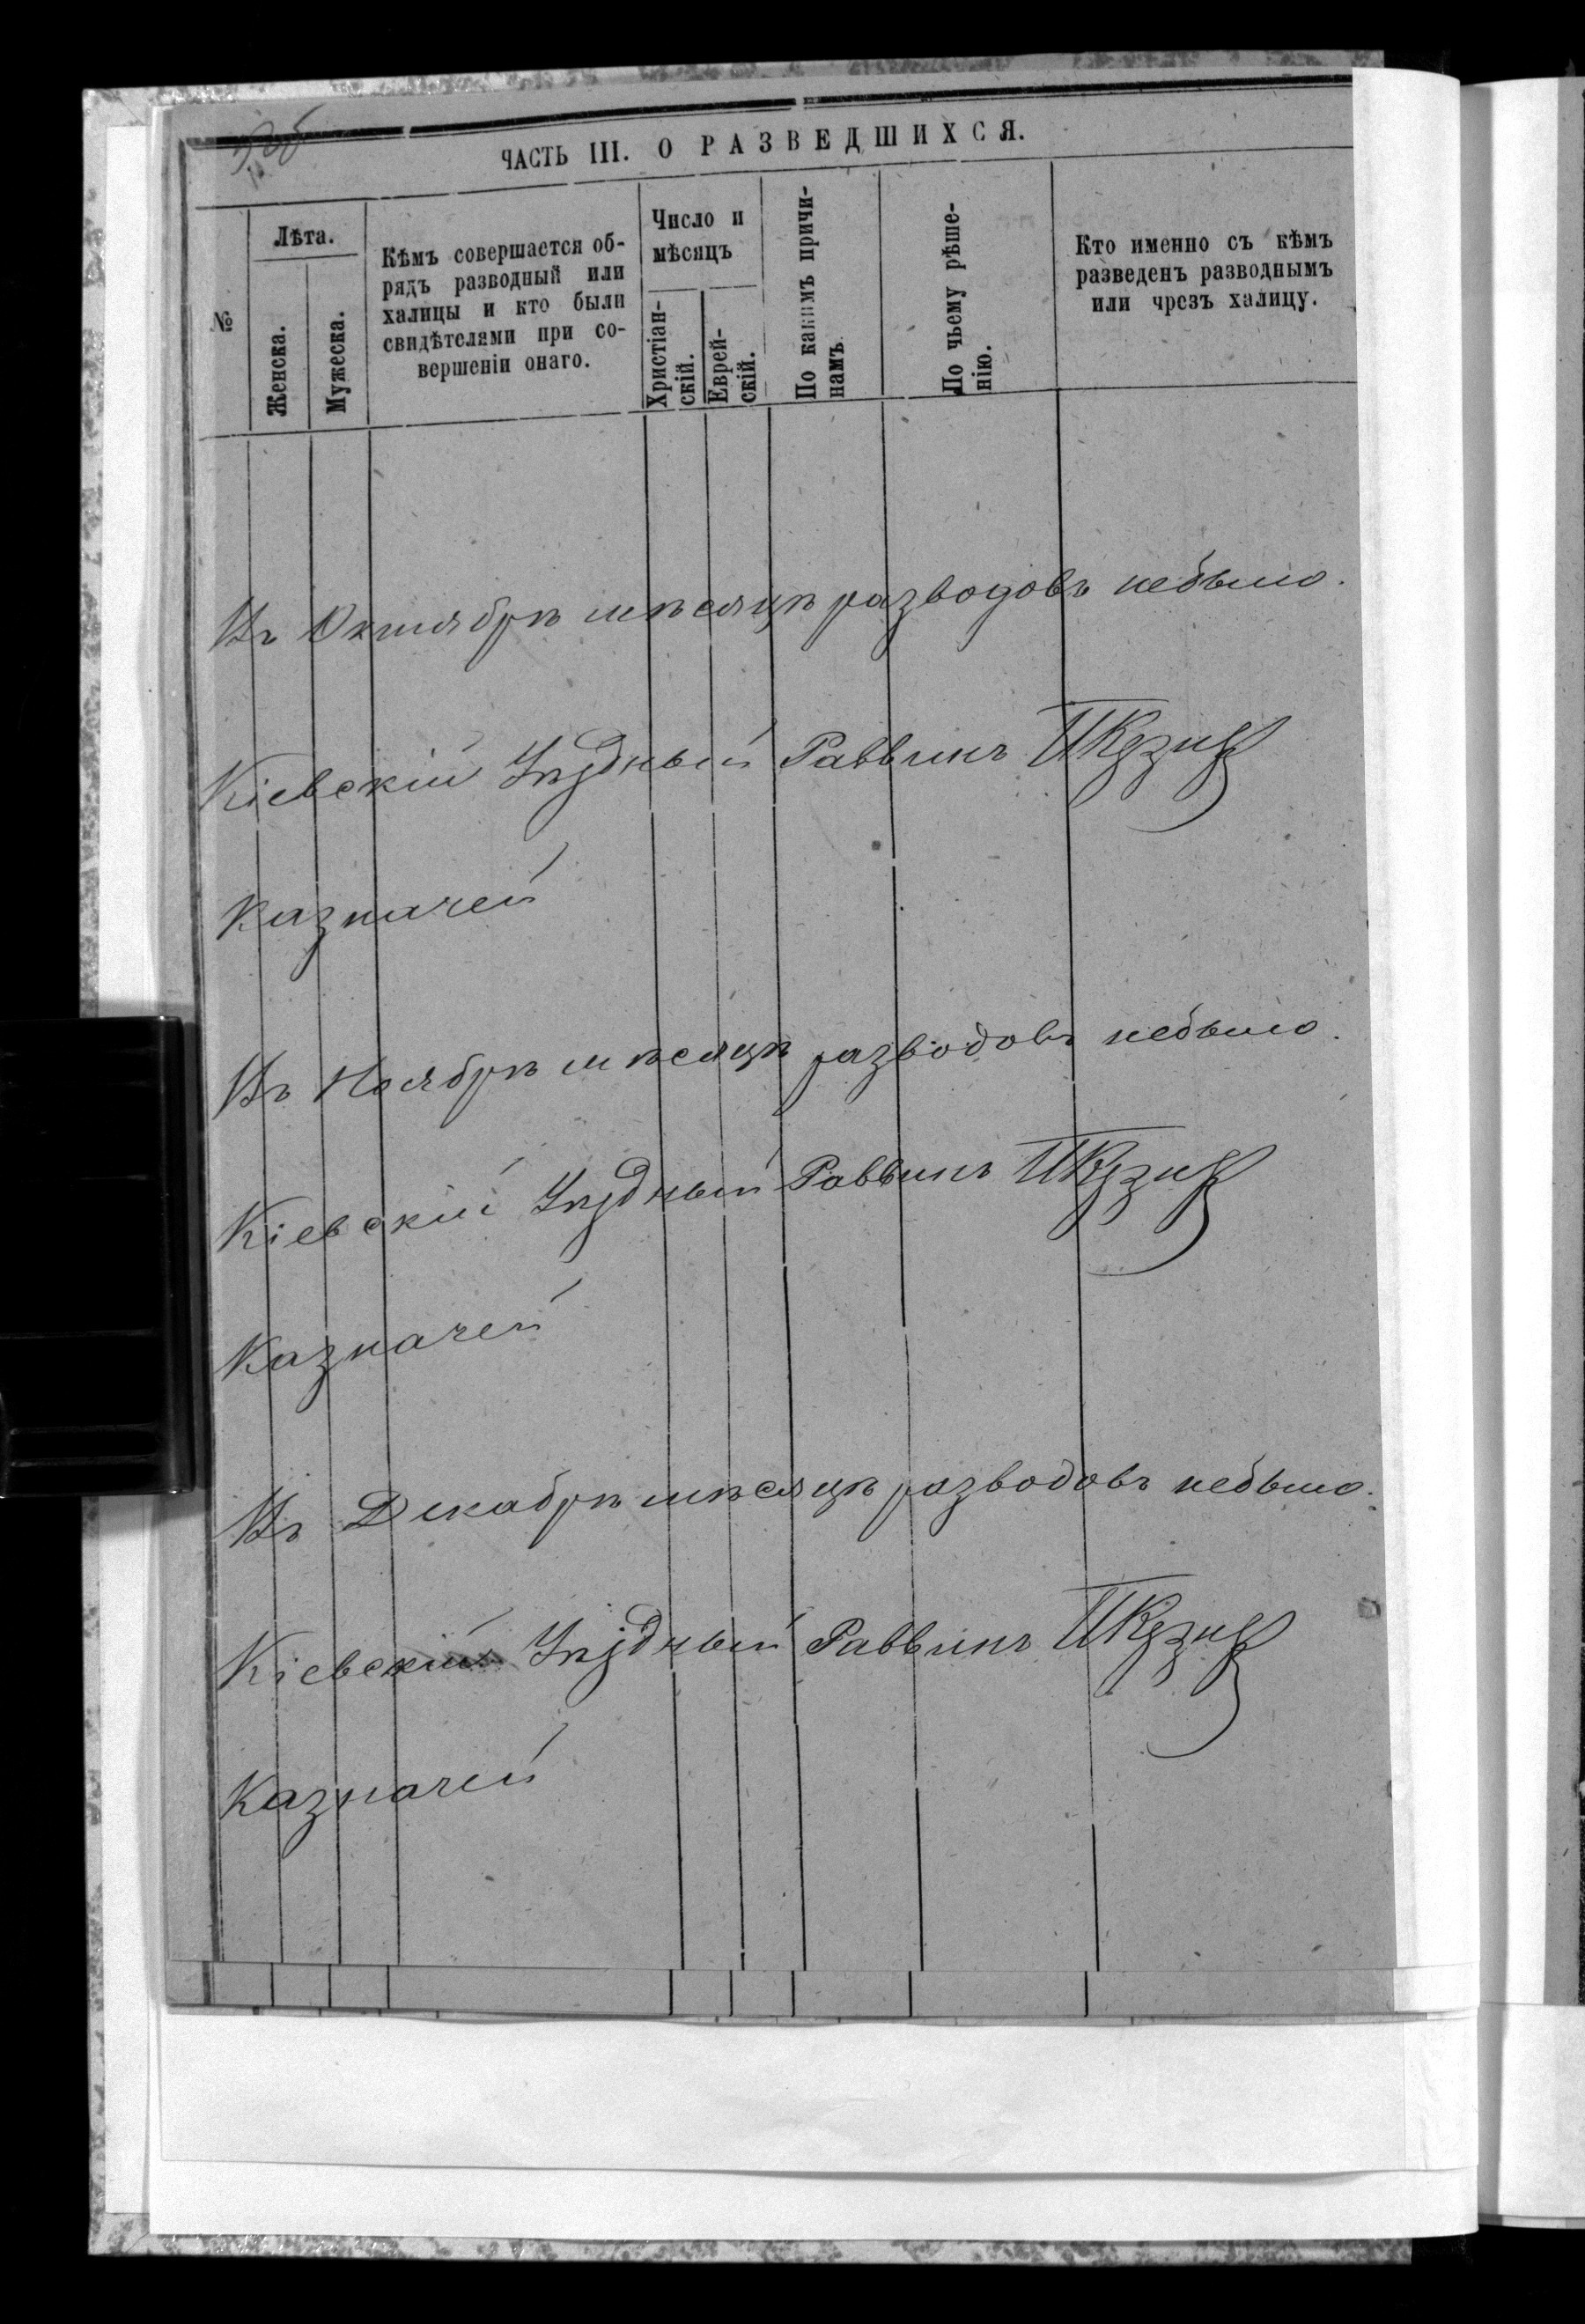 ЧАСТЬ III. О РАЗВЕДШИХСЯ.
№
Лѣта.
Женска.
Мужеска.
Кѣмъ совершается об-
рядъ разводный или
халицы и кто были
свидѣтелями при со-
вершеніи онаго.
Число и
мѣсяцъ
Христіан-
скій.
Еврей-
скій.
По какимъ причи-
намъ
По чьему рѣше-
нію.
Кто именно съ кѣмъ
разведенъ разводнымъ
или чрезъ халицу.
Въ Октябрѣ мѣсяцѣ разводовъ небыло.
Кіевскій Уѣздный Раввинъ
Казначей
Въ Ноябрѣ мѣсяцѣ разводовъ небыло.
Кіевскій Уѣздный Раввинъ
Казначей
Въ Декабрѣ мѣсяцѣ разводовъ небыло.
Кіевскій Уѣздный Раввинъ
Казначей